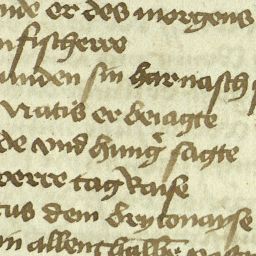 nde er des morgens
n fischerre
unden sin harnasch
vratis er beiagte
de vnd hung͛ sagte
verre tag Raise
tus dem brytonayse
in allenthalbē